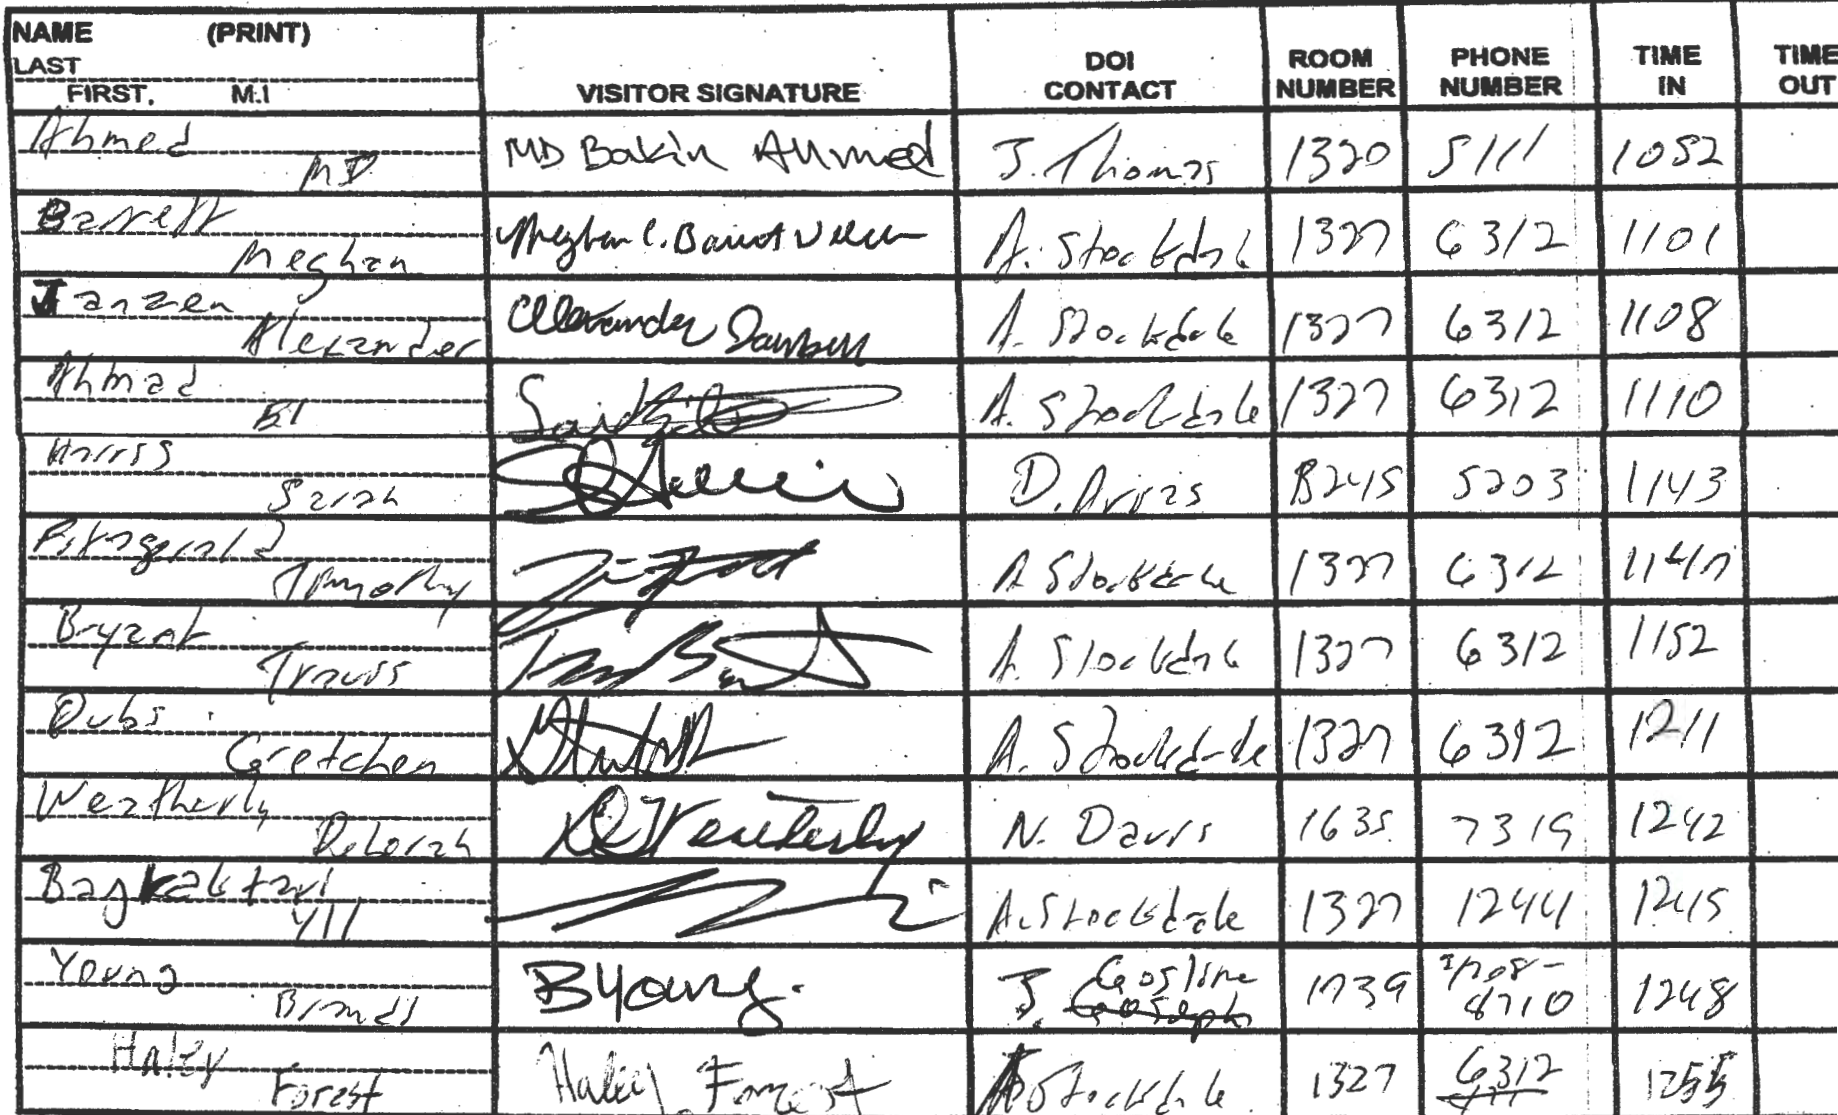 NAME (PRINT)
LAST
FIRST, M.I
VISITOR SIGNATURE
DOI CONTACT
ROOM NUMBER
PHONE NUMBER
TIME IN
TIME OUT
Ahmed
MD
MD Bakin Ahmed
J. Thomas 1320 5111 1052
Barrett
Meghan
Meghan C. Barrett
A. Stockdale 1327 6312 1101
Janzen
Alexander
Alexander
A. Stockdale 1327 6312 1108
Ahmad
A. Stockdale 1327 6312 1110
Harris
Sarah
D. Arrias B245 5203 1143
Fitzgerald
Timothy
A Stockdale 1327 6312 1147
Bryant
Traviss
A. Stockdale 1327 6312 1152
Dubs
Gretchen
A. Stockdale 1327 6312 1211
Weatherly
Deborah
D Weatherly
N. Davis 1635 7319 1242
Baykaktari
Yll
A. Stockdale 1327 1244 1245
Young
Brandi
B Young.
J. Gosline 1739 208-8710 1248
Haley
Forest
Haley Forrest
A Stockdale 1327 6312 1255